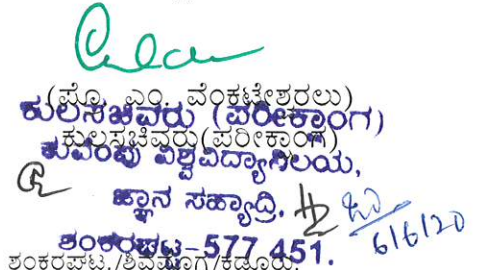 (ಪ್ರೊ. ಎಂ. ವೆಂಕಟೇಶ್ವರಲು)
ಕುಲಸಚಿವರು (ಪರೀಕ್ಷಾಂಗ)
ಕುಲಸಚಿವರು(ಪರೀಕ್ಷಾಂಗ)
ಕುವೆಂಪು ವಿಶ್ವವಿದ್ಯಾನಿಲಯ,
ಜ್ಞಾನ ಸಹ್ಯಾದ್ರಿ,
6/6/20
ಶಂಕರಘಟ್ಟ-577 451.
ಶಂಕರಘಟ್ಟ./ಶಿವಮೊಗ್ಗ/ಕಡೂರು.